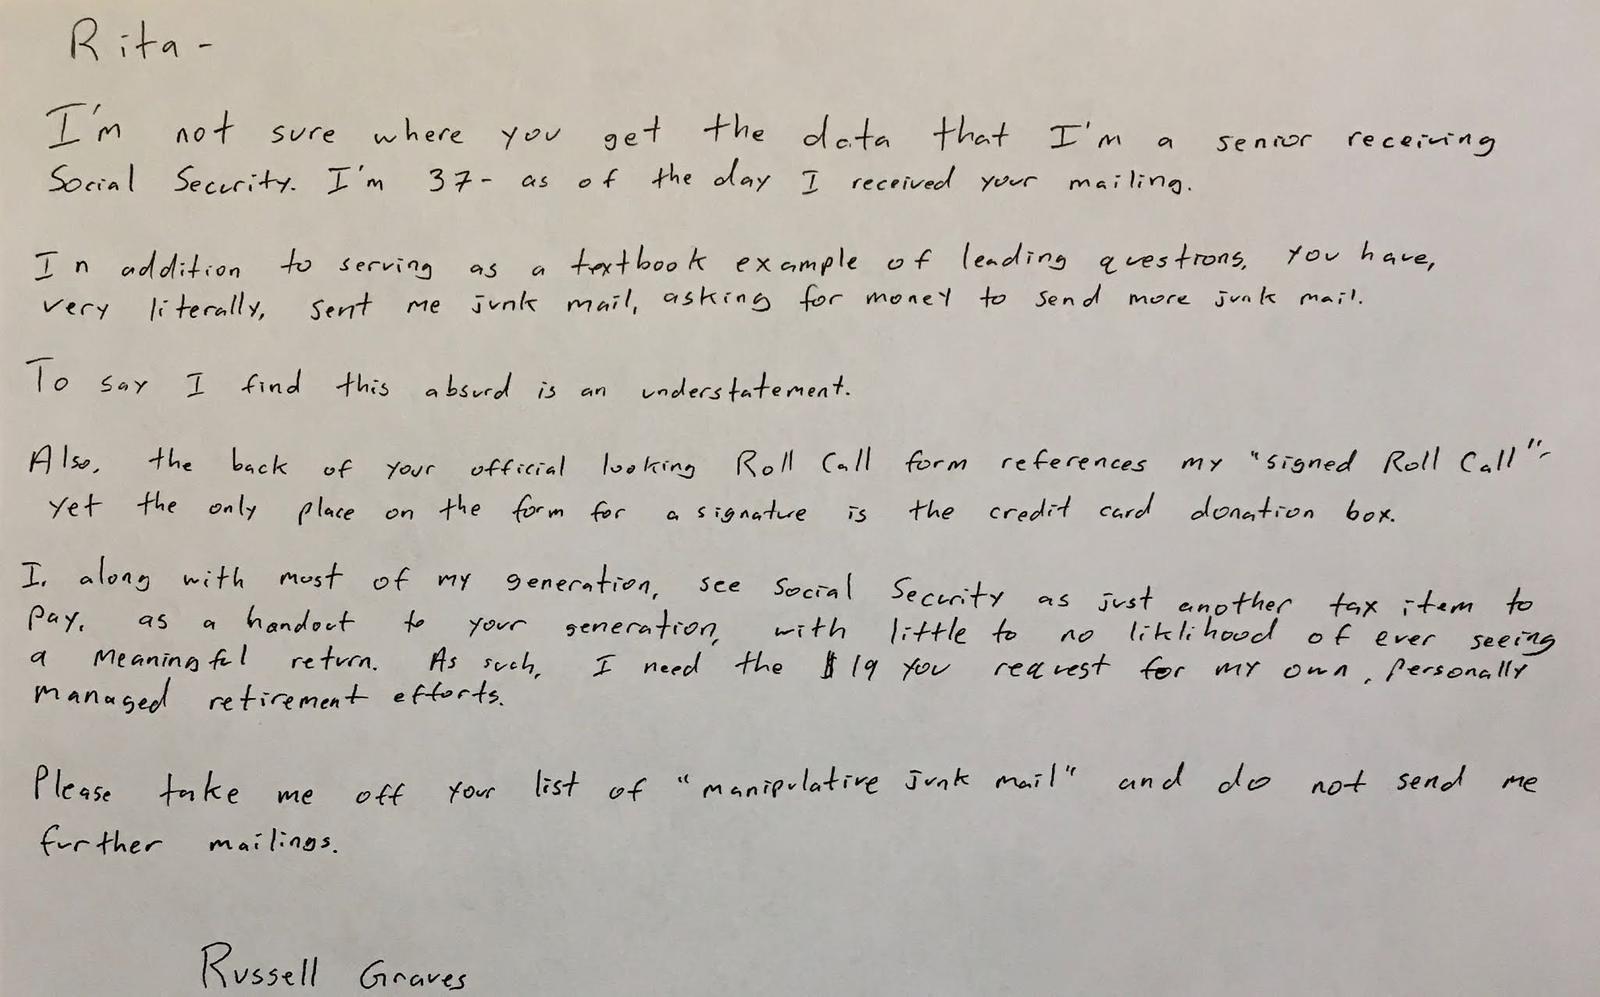 Rita -
I'm not sure where you get the data that I'm a senior receiving
Social Security. I'm 37- as of the day I received your mailing.
In addition to serving as a textbook example of leading questions, you have,
very literally, sent me junk mail, asking for money to send more junk mail.
To say I find this absurd is an understatement.
Also, the back of your official looking Roll Call form references my "signed Roll Call"-
yet the only place on the form for a signature is the credit card donation box.
I, along with most of my generation, see Social Security as just another tax item to
pay, as a handout to your generation, with little to no liklihood of ever seeing
a meaningful return. As such, I need the $19 you request for my own, personally
managed retirement efforts.
Please take me off your list of "manipulative junk mail" and do not send me
further mailings.
Russell Graves